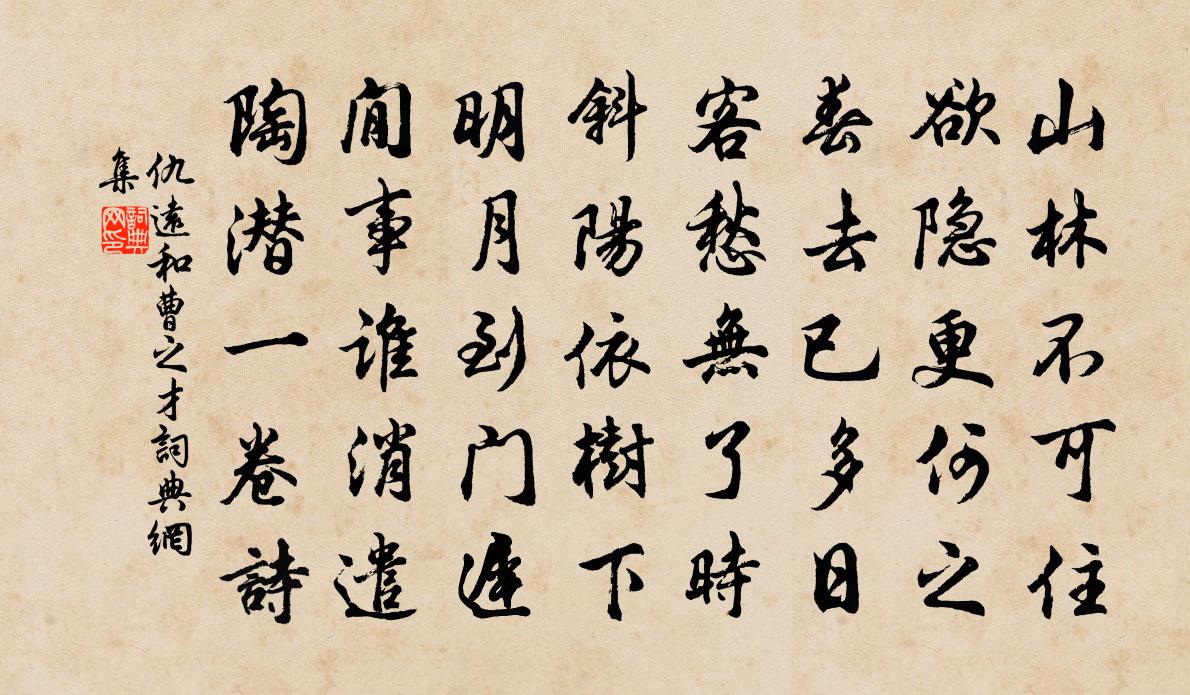 山林不可住
欲隐更何之
春去已多日
客愁無了時
斜陽依樹下
明月到门遅
閒事誰消遣
陶潜一卷詩
仇遠和曹之才詞典網
集
詞典
网印